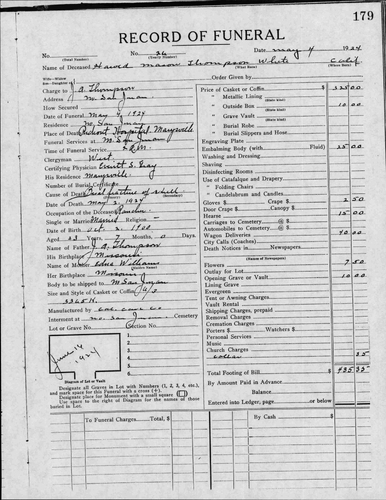 179
RECORD OF FUNERAL
No. No. 36 Date May 4 1924
(Total Number) (Yearly Number)
Name of Deceased Harold Mason Thompson White Calif
Order Given by
Charge to A. Thompson
Address N. San Juan
How Secured
Date of Funeral May 4 1924
Residence No. San Juan
Place of Death Hospital, Marysville
Funeral Services at N. San Juan
Time of Funeral Service
Clergyman West
Certifying Physician Everett E. Gray
His Residence Marysville
Number of Burial Certificate
Cause of Death fracture of skull
Date of Death May 2, 1924
Occupation of the Deceased
Single or Married Religion
Date of Birth Oct 2 1900
Aged 23 Years 7 Months 0 Days
Name of Father A. Thompson
His Birthplace Missouri
Name of Mother Edna Williams
Her Birthplace Missouri
Body to be shipped to N San Juan
Size and Style of Casket or Coffin 6/3
Manufactured by
Interment at No. San J Cemetery
Lot or Grave No. Section No.
June 14 1924
Diagram of Lot or Vault
Designate all Graves in Lot with Numbers (1, 2, 3, 4, etc.),
and mark space for this Funeral with a cross (+).
Designate place for Monument with a small square
Use space to the right of Diagram for the names of those
buried in Lot.
Price of Casket or Coffin $ 325 00
" Metallic Lining
" Outside Box 10 00
" Grave Vault
" Burial Robe
" Burial Slippers and Hose
Engraving Plate
Embalming Body (with Fluid) 25 00
Washing and Dressing
Shaving
Disinfecting Rooms
Use of Catafalque and Drapery
" Folding Chairs
" Candelabrum and Candles
Gloves $ Crape $ 2 50
Door Crape Canopy $
Hearse 15 00
Carriages to Cemetery @ $
Automobiles to Cemetery @ $
Wagon Deliveries 40 00
City Calls (Coaches)
Death Notices in Newspapers
Flowers 7 50
Outlay for Lot
Opening Grave or Vault 10 00
Lining Grave
Evergreen
Tent or Awning Charges
Vault Rental
Shipping Charges, prepaid
Removal Charges
Cremation Charges
Porters $ Watchers $
Personal Services
Music
Church Charges
35
Total Footing of Bill $ 435 35
By Amount Paid in Advance
Balance
Entered into Ledger, page or below.
To Funeral Charges, Total, $ By Cash $